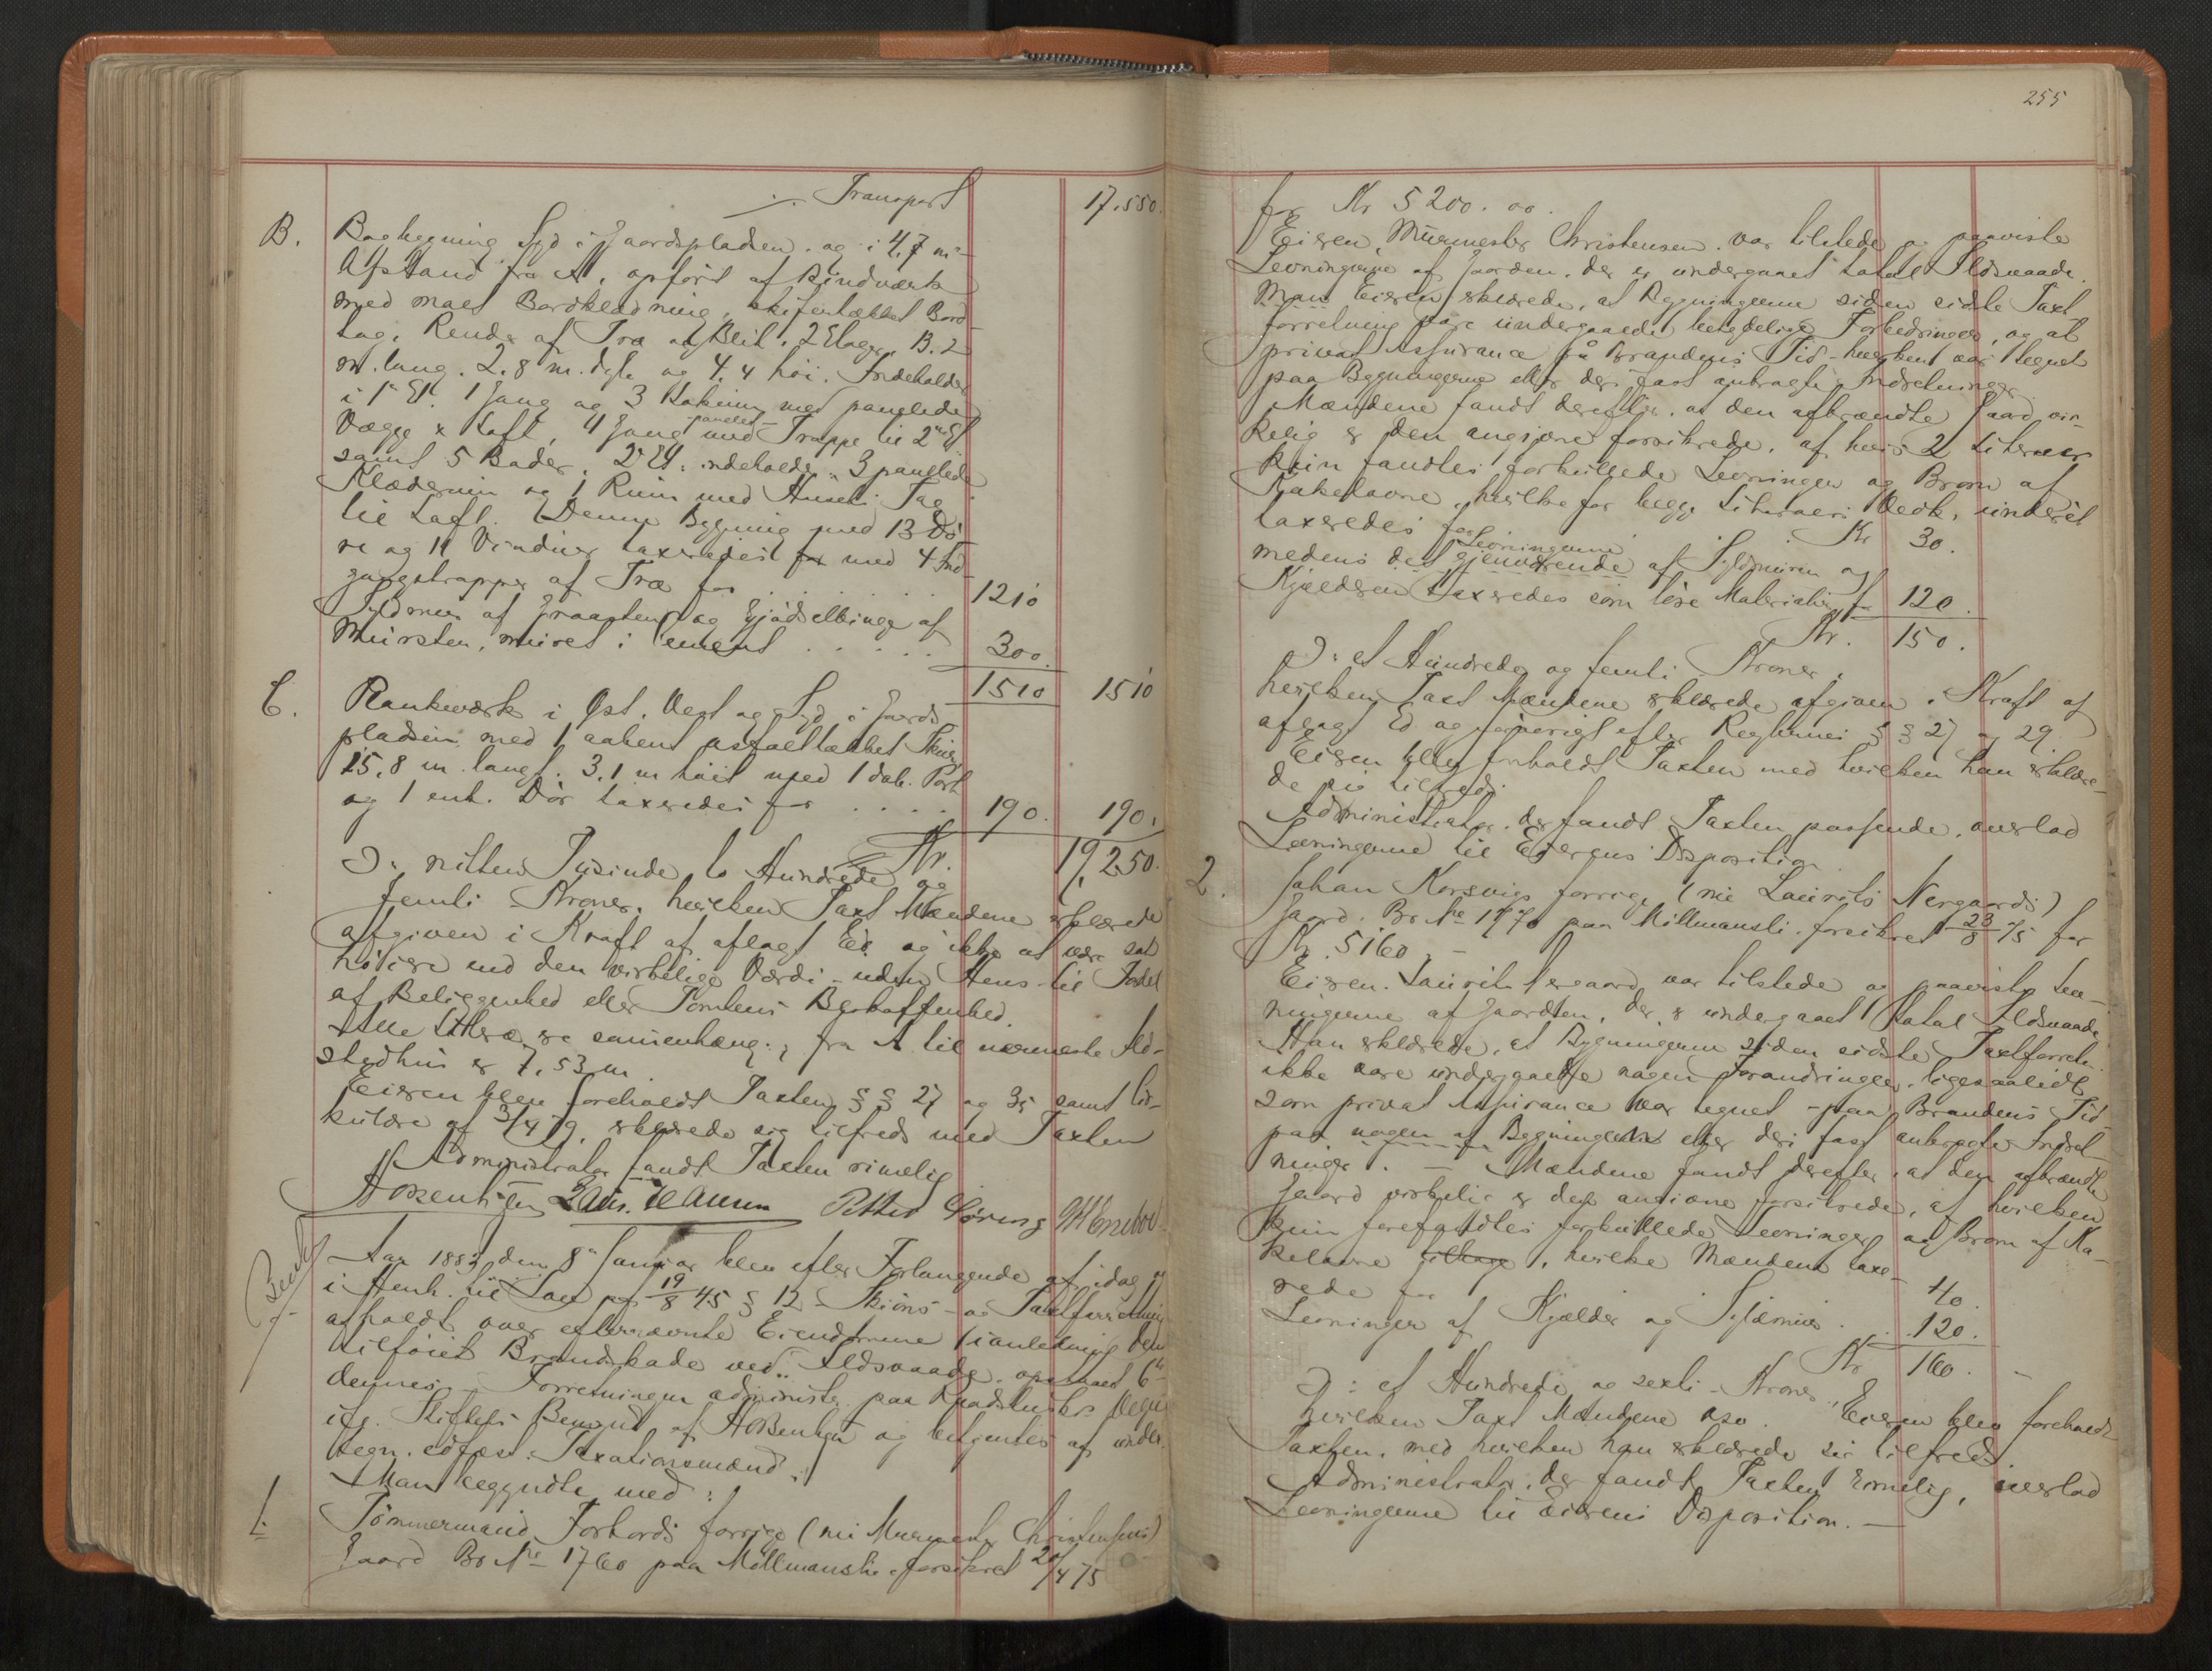 ·/. Transport 17.550.
B. Bagbygning Syd i Gaardspladsen og i 4,7 m
Afstand fra A, opført af Bindværk
med malt Bordklædning, skifertækket Bord-
tag, Render af Træ og Blik. 2 Etager.
m. lang. 2,8 m. dyb og 4,4 høi. Indeholder
i 1ste Et. 1 Gang og 3 med panelede
Vægge & Loft, 1 Gang med Trappe til 2den Et
panelet
samt 5 Boder. 2 Et. indeholder 3 panelede
Klæderum og 1 Rum med Tag
til Loft. Denne Bygning med 13 Dø-
re og 11 Vinduer taxeredes for med 4 Ind-
gangstrapper af Træ for . . . . . . 1210
Syldmur af Graasten og Gjødselbinge af
Mursten, muret i Cement . . . . . 300.
1510 1510
C. Plankeværk i Øst, Vest og Syd i Gaards-
pladsen med 1 aabent asfalttækket Skur
15,8 m langt. 3,1 m høit med 1 dob. Port
og 1 enk. Dør taxeredes for . . . . 190. 190.
Kr. 19,250.
ɔ: nitten Tusinde to Hundrede og
femti Kroner, hvilken Taxt Mændene erklærede
afgiven i Kraft af aflagt Ed og ikke at være sat
høiere end den virkelige Værdi - uden Hens. til Fordel
af Beliggenhed eller Tomtens Beskaffenhed.
Alle Litera ere sammenhæng., fra A til nærmeste Ild-
stedhus er 7,53 m
Eieren blev foreholdt Taxten, §§ 27 og 35 samt Cir-
kulære af 3/4 79, erklærede sig tilfreds med Taxten
Administrator fandt Taxten rimelig
Petter
Aar 1883 den 8de Januar blev efter Forlangende af idag og
i Henh. til Lov af 19/8 45 § 12 Skjøns- og Taxtforretning
afholdt over efternævnte Eiendomme i anledning dem
tilføiet Brandskade ved Ildsvaade, opstaaet 6te
dennes. Forretningen administr. paa Vegne
iflg. Stiftets Bemynd. af og betjentes af under-
tegn. edfæst. Taxationsmænd.
Man begyndte med:
1. Tømmermand Forbords forrige (nu Murmester Christensens)
Gaard Br No 1760 paa Møllmannsli forsikret 20/4 75
255
for Kr 5200.00.
Eieren, Murmester Christensen var tilstede og paaviste
Levningerne af Gaarden, der er undergaaet total Ildsvaade.
Eieren erklærede, at Bygningerne siden sidste Taxt-
forretning vare undergaaede betydelige Forbedringer, og at
privat Assurance paa Brandens Tid hverken var tegnet
paa Bygningerne eller deri fast anbragte Indretninger.
Mændene fandt derefter, at den afbrændte Gaard vir-
kelig er den angivne forsikrede, af hvis 2 Literaer
kun fandtes forkullede Levninger og Brom af
Kakelovne, hvilke for begge Literaers Vedk. under et
taxeredes for . . Kr 30.
medens det gjenværende af Syldmuren og
Levningerne
Kjælderen taxeredes som løse Materialier for 120.
Kr. 150.
ɔ: et Hundrede og femti Kroner,
hvilken Taxt Mændene erklærede afgiven i Kraft af
aflagt Ed og iøvrigt efter Reglernes §§ 27 og 29.
Eieren blev foreholdt Taxten med hvilken han erklære-
de sig tilfreds.
Administrator, der fandt Taxten passende, overlod
Levningerne til Eierens Disposition
2. Johan Korsvigs forrige (nu Laurits Nergaards)
Gaard Br No 1770 paa Møllmannsli forsikret 28/8 75 for
Kr. 5160.-
Eieren Laurits Nergaard var tilstede og paaviste Lev-
ningerne af Gaarden, der er undergaaet total Ildsvaade
Han erklærede, at Bygningerne siden sidste Taxtforretn.
ikke vare undergaaede nogen Forandringer, ligesaalidt
som privat Assurance var tegnet paa Brandens Tid
paa nogen af Bygningerne eller deri fast anbragte Indret-
ninger. - Mændene fandt derefter, at den afbrændte
Gaard virkelig er den angivne forsikrede, af hvilken
kun forefandtes forkullede Levninger og Brom af Ka-
kelovne tilbage, hvilke Mændene taxe-
rede for 40.
Levninger af Kjælder og Syldmur . . 120.
Kr 160. -
ɔ: et Hundrede og sexti Kroner,
hvilken Taxt Mændene osv. Eieren blev foreholdt
Taxten, med hvilken han erklærede sig tilfreds.
Administrator, der fandt Taxten rimelig, overlod
Levningerne til Eierens Disposition. -